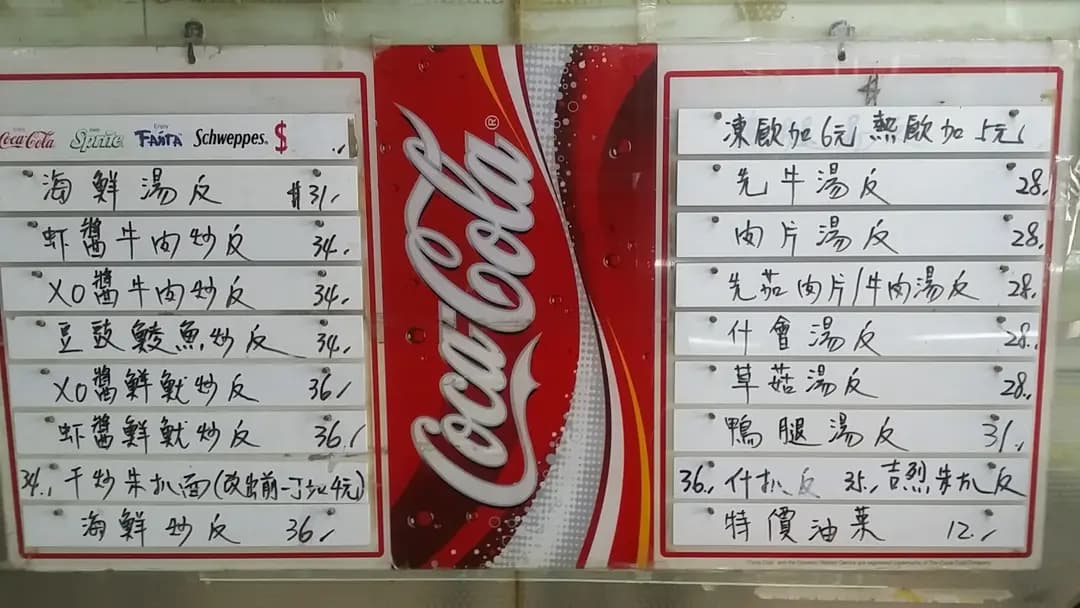 Coca-Cola Sprite Fanta Schweppes® $
海鮮湯反 $31/
虾醬牛肉炒反 34/
XO醬牛肉炒反 34/
豆豉鯪魚炒反 34/
XO醬鮮魷炒反 36/
虾醬鮮魷炒反 36/
34/ 干炒朱扒面(改出前一丁加4元)
海鮮炒反 36/
Coca-Cola®
$
凍飲加6元 熱飲加5元/
先牛湯反 28/
肉片湯反 28/
先茄肉片/牛肉湯反 28/
什會湯反 28/
草菇湯反 28/
鴨腿湯反 31/
36/ 什扒反 35/ 吉烈朱扒反
特價油菜 12/